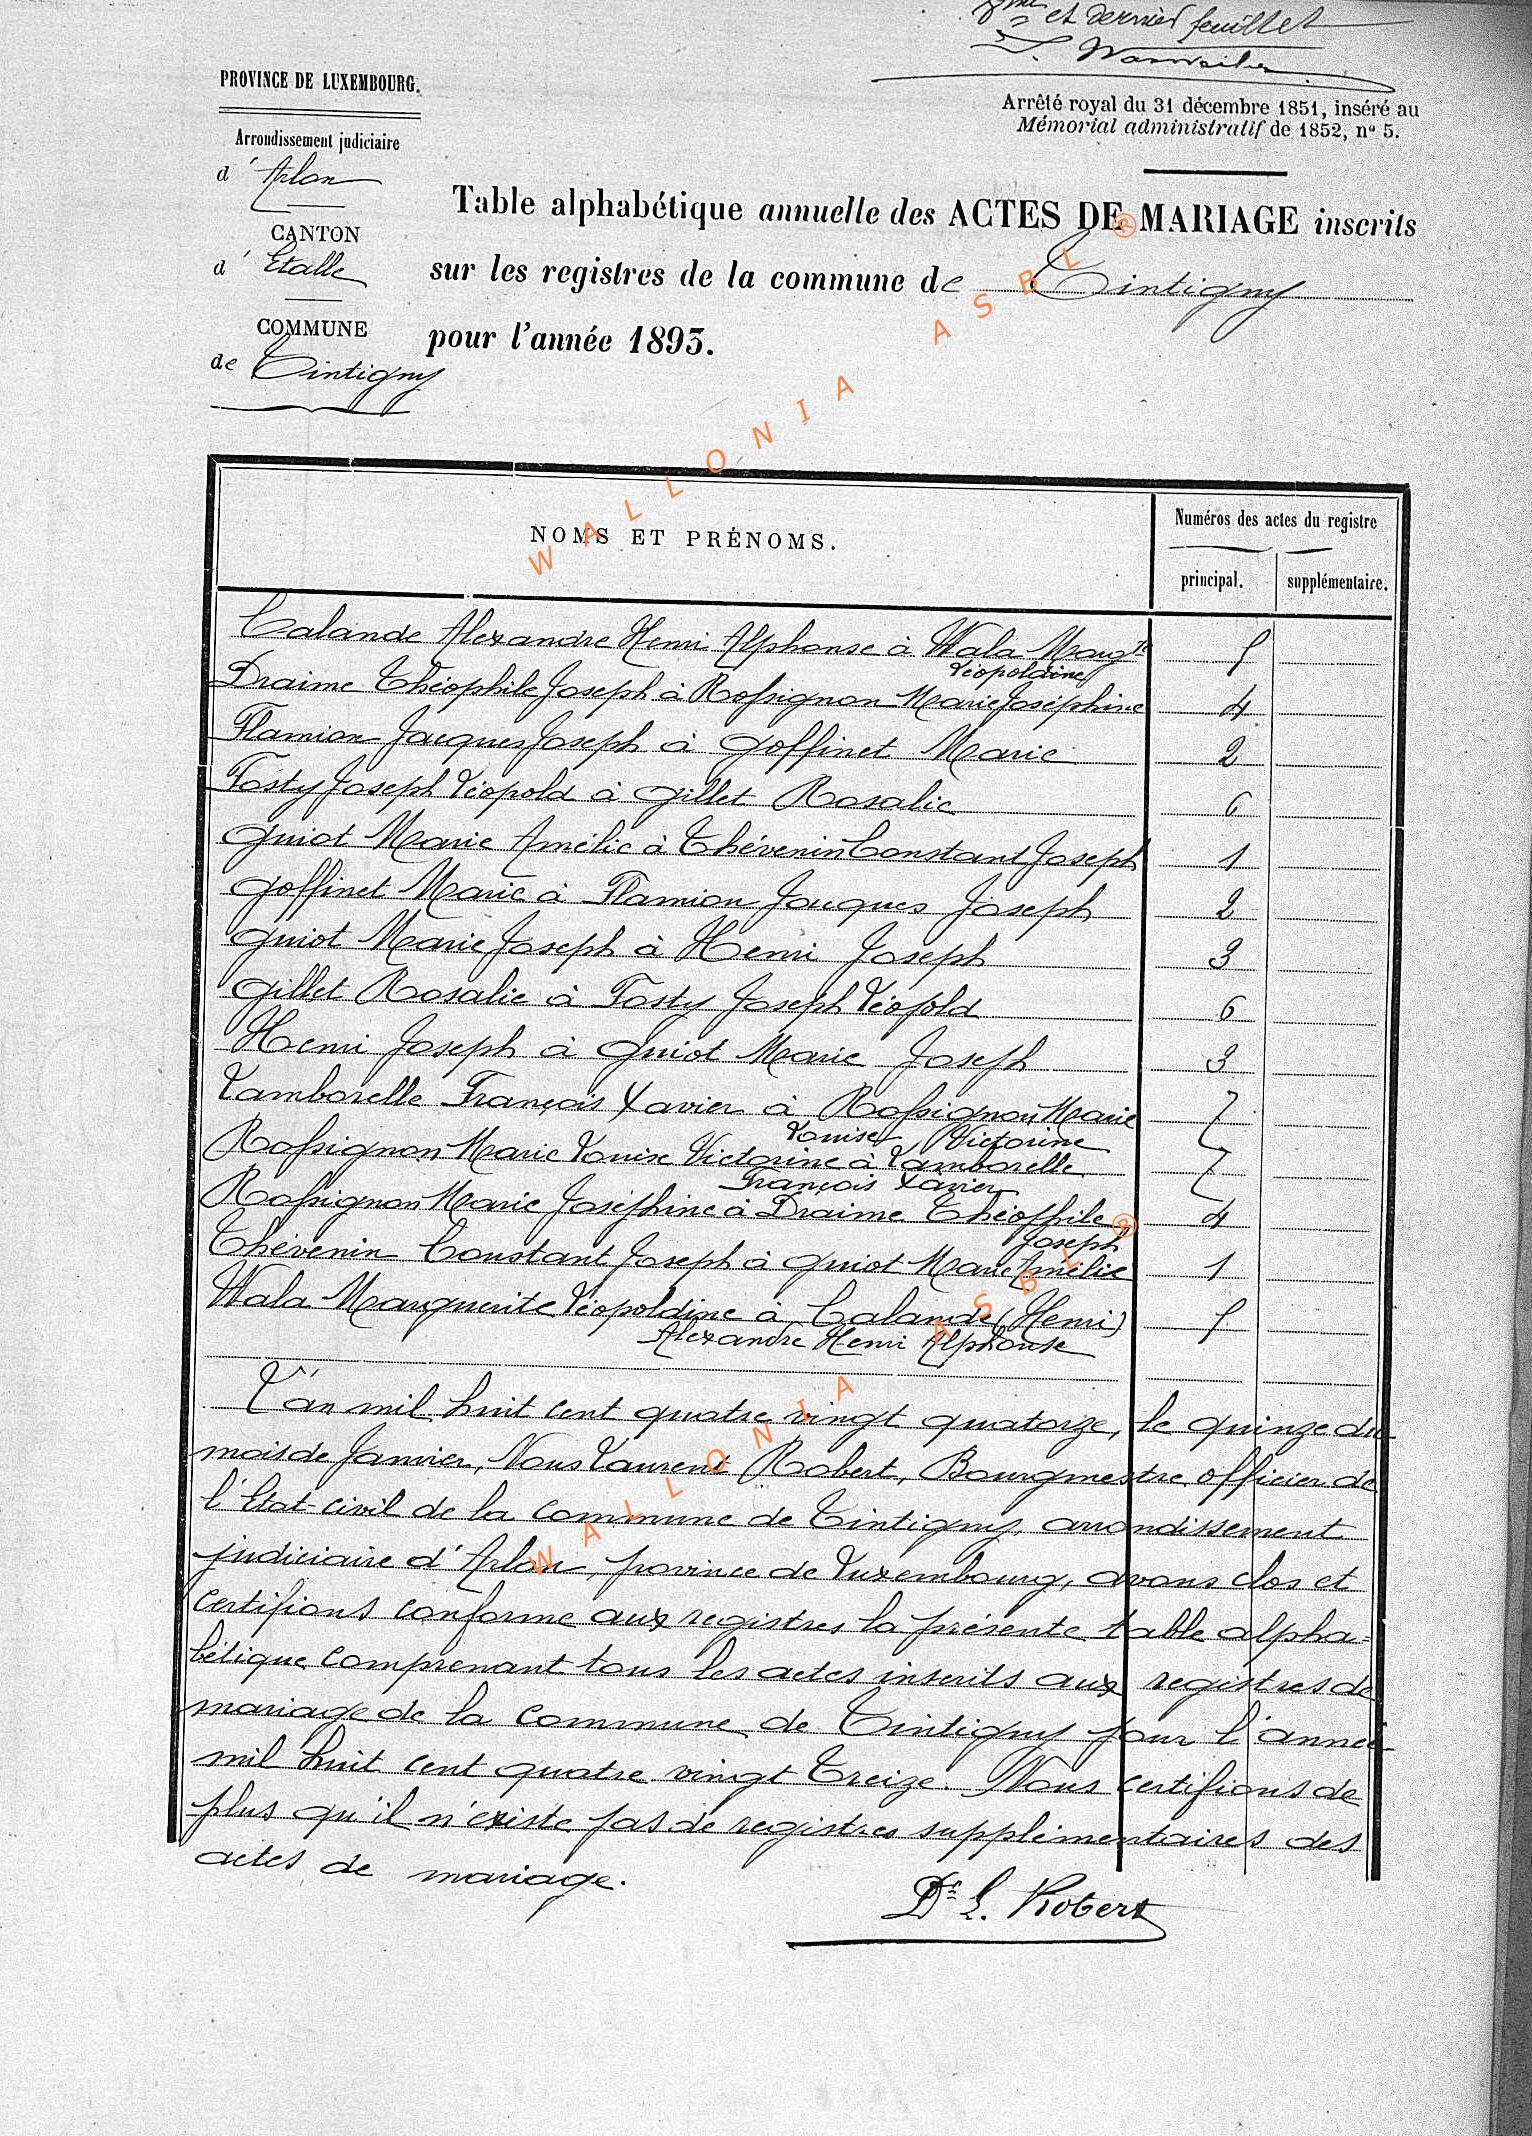 8me et dernier feuillet
PROVINCE DE LUXEMBOURG.
Arrêté royal du 31 décembre 1851, inséré au
Mémorial administratif de 1852, no 5.
Arrondissement judiciaire
d'Arlon
CANTON
d'Etalle
COMMUNE
de Tintigny
Table alphabétique annuelle des ACTES DE MARIAGE inscrits
sur les registres de la commune de Tintigny
pour l'année 1893.
WALLONIA ASBL ®
NOMS ET PRÉNOMS.
Numéros des actes du registre
principal. supplémentaire.
Calande Alexandre Henri Alphonse à Wala Margte 5
Léopoldine
Draime Théophile Joseph à Rossignon Marie Joséphine 4
Flamion Jacques Joseph à Goffinet Marie 2
Fosty Joseph Léopold à Gillet Rosalie 6
Guiot Marie Amélie à Thévenin Constant Joseph 1
Goffinet Marie à Flamion Jacques Joseph 2
Guiot Marie Joseph à Henri Joseph 3
Gillet Rosalie à Fosty Joseph Léopold 6
Henri Joseph à Guiot Marie Joseph 3
Lamborelle François Xavier à Rossignon Marie 7
Louise Victorine
Rossignon Marie Louise Victorine à Lamborelle 7
François Xavier
Rossignon Marie Joséphine à Draime Théophile 4
Joseph
Thévenin Constant Joseph à Guiot Marie Amélie 1
Wala Marguerite Léopoldine à Calande (Henri) 5
Alexandre Henri Alphonse
L'an mil huit cent quatre vingt quatorze, le quinze du
mois de Janvier, Nous Laurent Robert, Bourgmestre, officier de
l'Etat-civil de la commune de Tintigny, arrondissement
judiciaire d'Arlon, province de Luxembourg, avons clos et
certifions conforme aux registres la présente table alpha=
bétique comprenant tous les actes inscrits aux registres de
mariage de la commune de Tintigny pour l'année
mil huit cent quatre vingt treize. Nous certifions de
plus qu'il n'existe pas de registres supplémentaires des
actes de mariage.
Dr L. Robert
WALLONIA ASBL ®